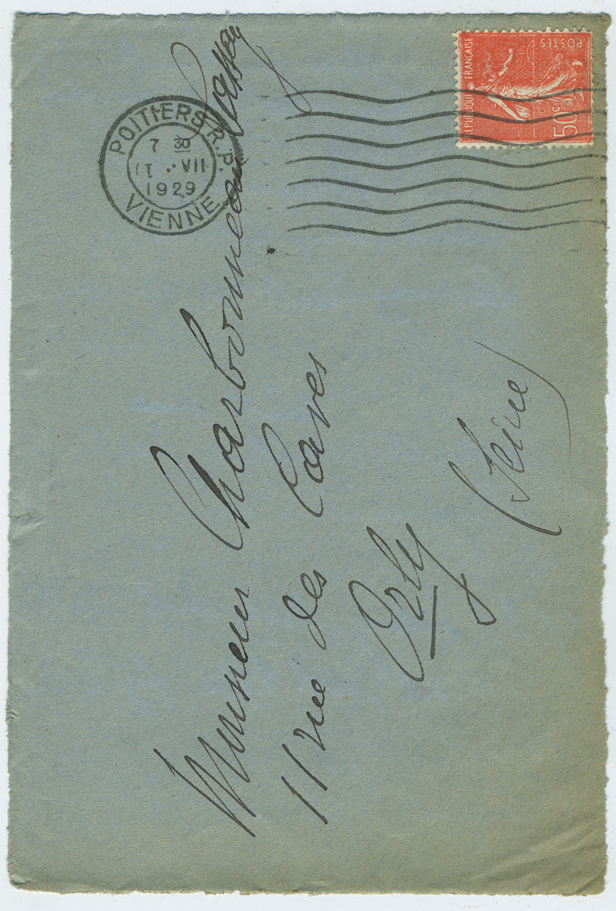 POITIERS R.P.
7 30
11 • VII
1929
VIENNE
RÉPUBLIQUE FRANÇAISE
POSTES
50c
Monsieur Charbonneau
11 rue des Caves
Orly
(Seine)